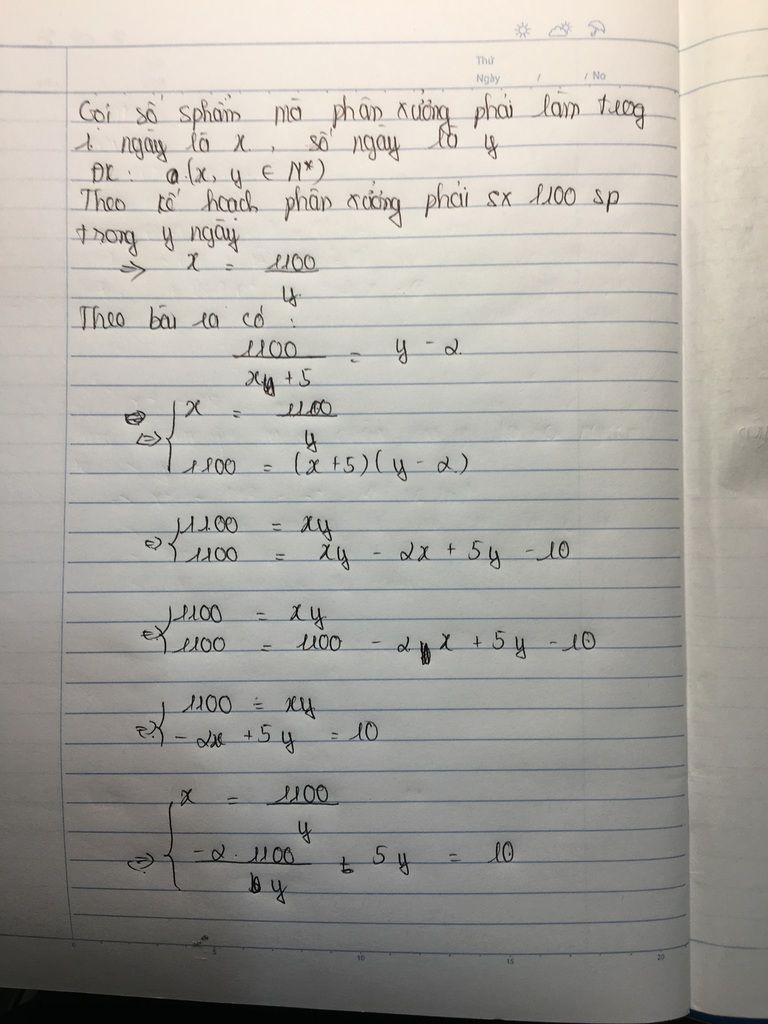 Thứ
Ngày / / No
Gọi số sphẩm mà phân xưởng phải làm trong
1 ngày là x , số ngày là y
ĐK : (x, y ∈ N*)
Theo kế hoạch phân xưởng phải sx 1100 sp
trong y ngày
=> x = 1100 / y
Theo bài ra có :
1100 / x + 5 = y - 2
<=> { x = 1100 / y
1100 = (x + 5)(y - 2)
<=> { 1100 = xy
1100 = xy - 2x + 5y - 10
<=> { 1100 = xy
1100 = 1100 - 2x + 5y - 10
<=> { 1100 = xy
- 2x + 5y = 10
<=> { x = 1100 / y
-2 . 1100 / y + 5y = 10
5 10 15 20